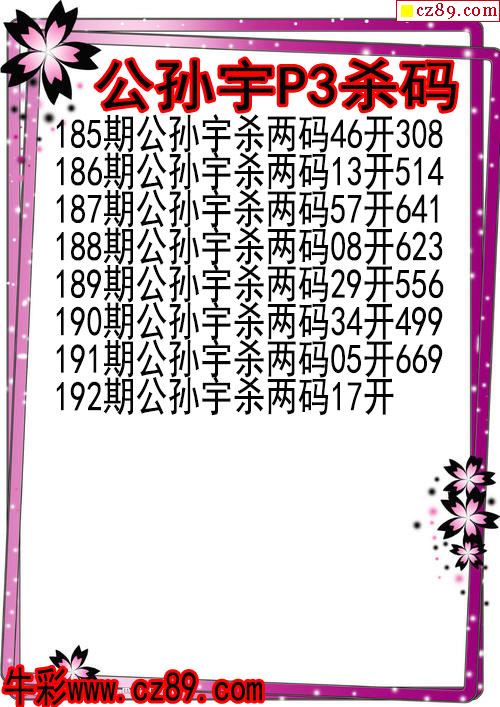 cz89.com
公孙宇P3杀码
185期公孙宇杀两码46开308
186期公孙宇杀两码13开514
187期公孙宇杀两码57开641
188期公孙宇杀两码08开623
189期公孙宇杀两码29开556
190期公孙宇杀两码34开499
191期公孙宇杀两码05开669
192期公孙宇杀两码17开
牛彩www.cz89.com